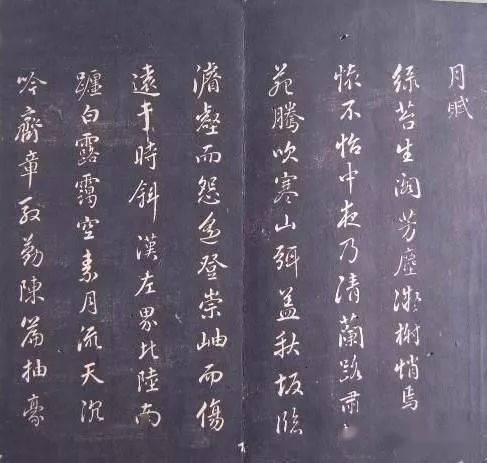 月賦
綠苔生閣芳塵凝榭悄焉
懷不怡中夜乃清蘭路肅
苑騰吹寒山弭蓋秋坂臨
濬壑而怨遙登崇岫而傷
遠于時斜漢左界北陸南
躔白露靄空素月流天沉
吟齊章殷勤陳篇抽豪